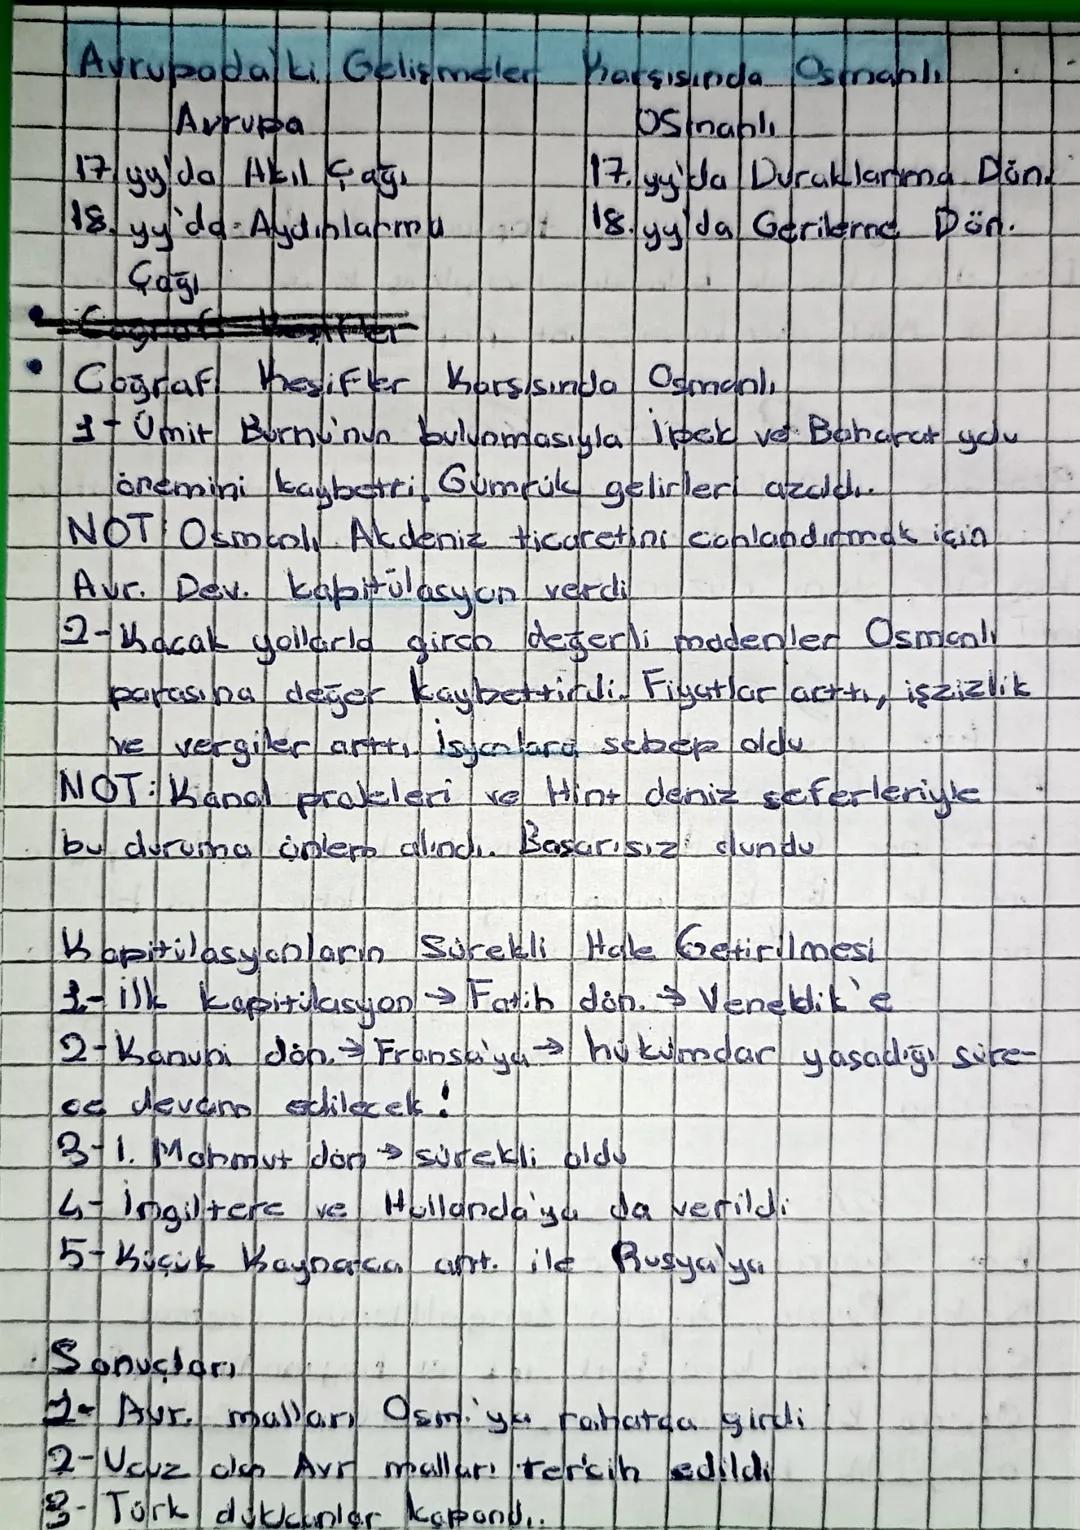 Avrupada'ki Gelişmeler Karşısında Osmanlı
Avrupa Osmanlı
17. yy'da Akıl Çağı 17. yy'da Duraklama Dön.
18. yy'da Aydınlanma 18. yy'da Gerileme Dön.
Çağı
Coğrafi Keşifler
• Coğrafi Keşifler Karşısında Osmanlı
1- Ümit Burnu'nun bulunmasıyla İpek ve Baharat yolu
önemini kaybetti. Gümrük gelirleri azaldı.
NOT: Osmanlı Akdeniz ticaretini canlandırmak için
Avr. Dev. kapitülasyon verdi
2- Kaçak yollarla giren değerli madenler Osmanlı
parasına değer kaybettirdi. Fiyatlar arttı, işzizlik
ve vergiler arttı. İsyanlara sebep oldu
NOT: Kanal projeleri ve Hint deniz seferleriyle
bu duruma önlem alındı. Başarısız olundu
Kapitülasyonların Sürekli Hale Getirilmesi
1- İlk kapitülasyon → Fatih dön. → Venedik'e
2- Kanuni dön. → Fransa'ya → hükümdar yaşadığı süre-
ce devam edilecek!
3- 1. Mahmut dön → sürekli oldu
4- İngiltere ve Hollanda'ya da verildi
5- Küçük Kaynarca ant. ile Rusya'ya
Sonuçları
1- Avr. malları Osm.'ya rahatça girdi
2- Ucuz olan Avr malları tercih edildi
3- Türk dükkanlar kapandı.